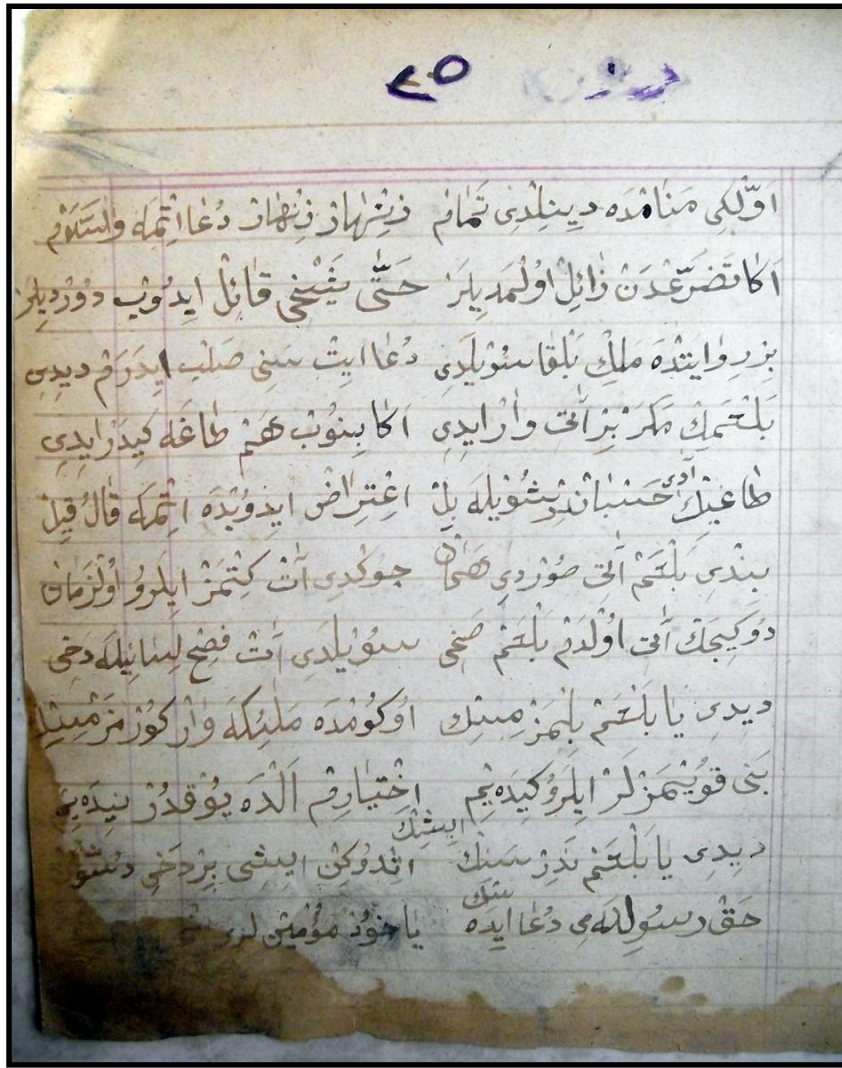 ٢٥
اوّلكى مَنَامْدَه دِينِلْدِى تَمَامْ زِنْهَارْ زِنْهَارْ دُعَا اِتْمَه وَالسَّلَامْ
اَكَا تَضَرُّعْدَنْ زَائِلْ اُولْمَدِيلَرْ حَتَّى شَيْخِى قَائِلْ اِيدُوبْ دُورْدِيلَرْ
بِرْ رِوَايَتْدَه مَلِكْ بَلْقَا سُويْلَدِى دُعَا ايتْ سَنِى صَلْب ايدَرَمْ دِيدِى
بَلْعَمِكْ مَكَرْ بِرْ آتِى وَارْ ايدِى اَكَا بِينُوبْ هَمْ طَاغَه كِيدَرْ ايدِى
طَاغِيكْ آدى حَسْبَانْدِرْ شُويْلَه بِلْ اِعْتِرَاضْ ايدُوبْدَه اِتْمَه قَالُ قِيلْ
بِيندِى بَلْعَمْ آتِى سُورْدِى هَمَانْ چوكدى آتْ كِتْمَزْ ايلَرُو اُولْزَمَانْ
دُوكِيجَكْ آتِى اُولْدَمْ بَلْعَمْ صَخِى سُويْلَدِى آتْ فَصِحْ لِسَانِيلَه دَخِى
دِيدِى يَا بَلْعَمْ بِلْمَزْمِيسِنْ اوُكُومْدَه مَلٰئِكَه وَارْ كُورْمَزْمِيسِنْ
بَنِى قُويْمَزْلَرْ ايلَرُو كِيدَه يِمْ اِخْتِيَارِمْ اَلْدَه يُوقْدُرْ نِيدَه يِمْ
دِيدِى يَا بَلْعَمْ نَدِرْ سَنِكْ ايشِكْ اِتْدُوكِنْ ايشِى بِرْ دَخِى
حَقْ رَسُولِنَه مِى دُعَا ايدَه سِنْ يَا خُودْ مُؤْمِنْ لَرِ